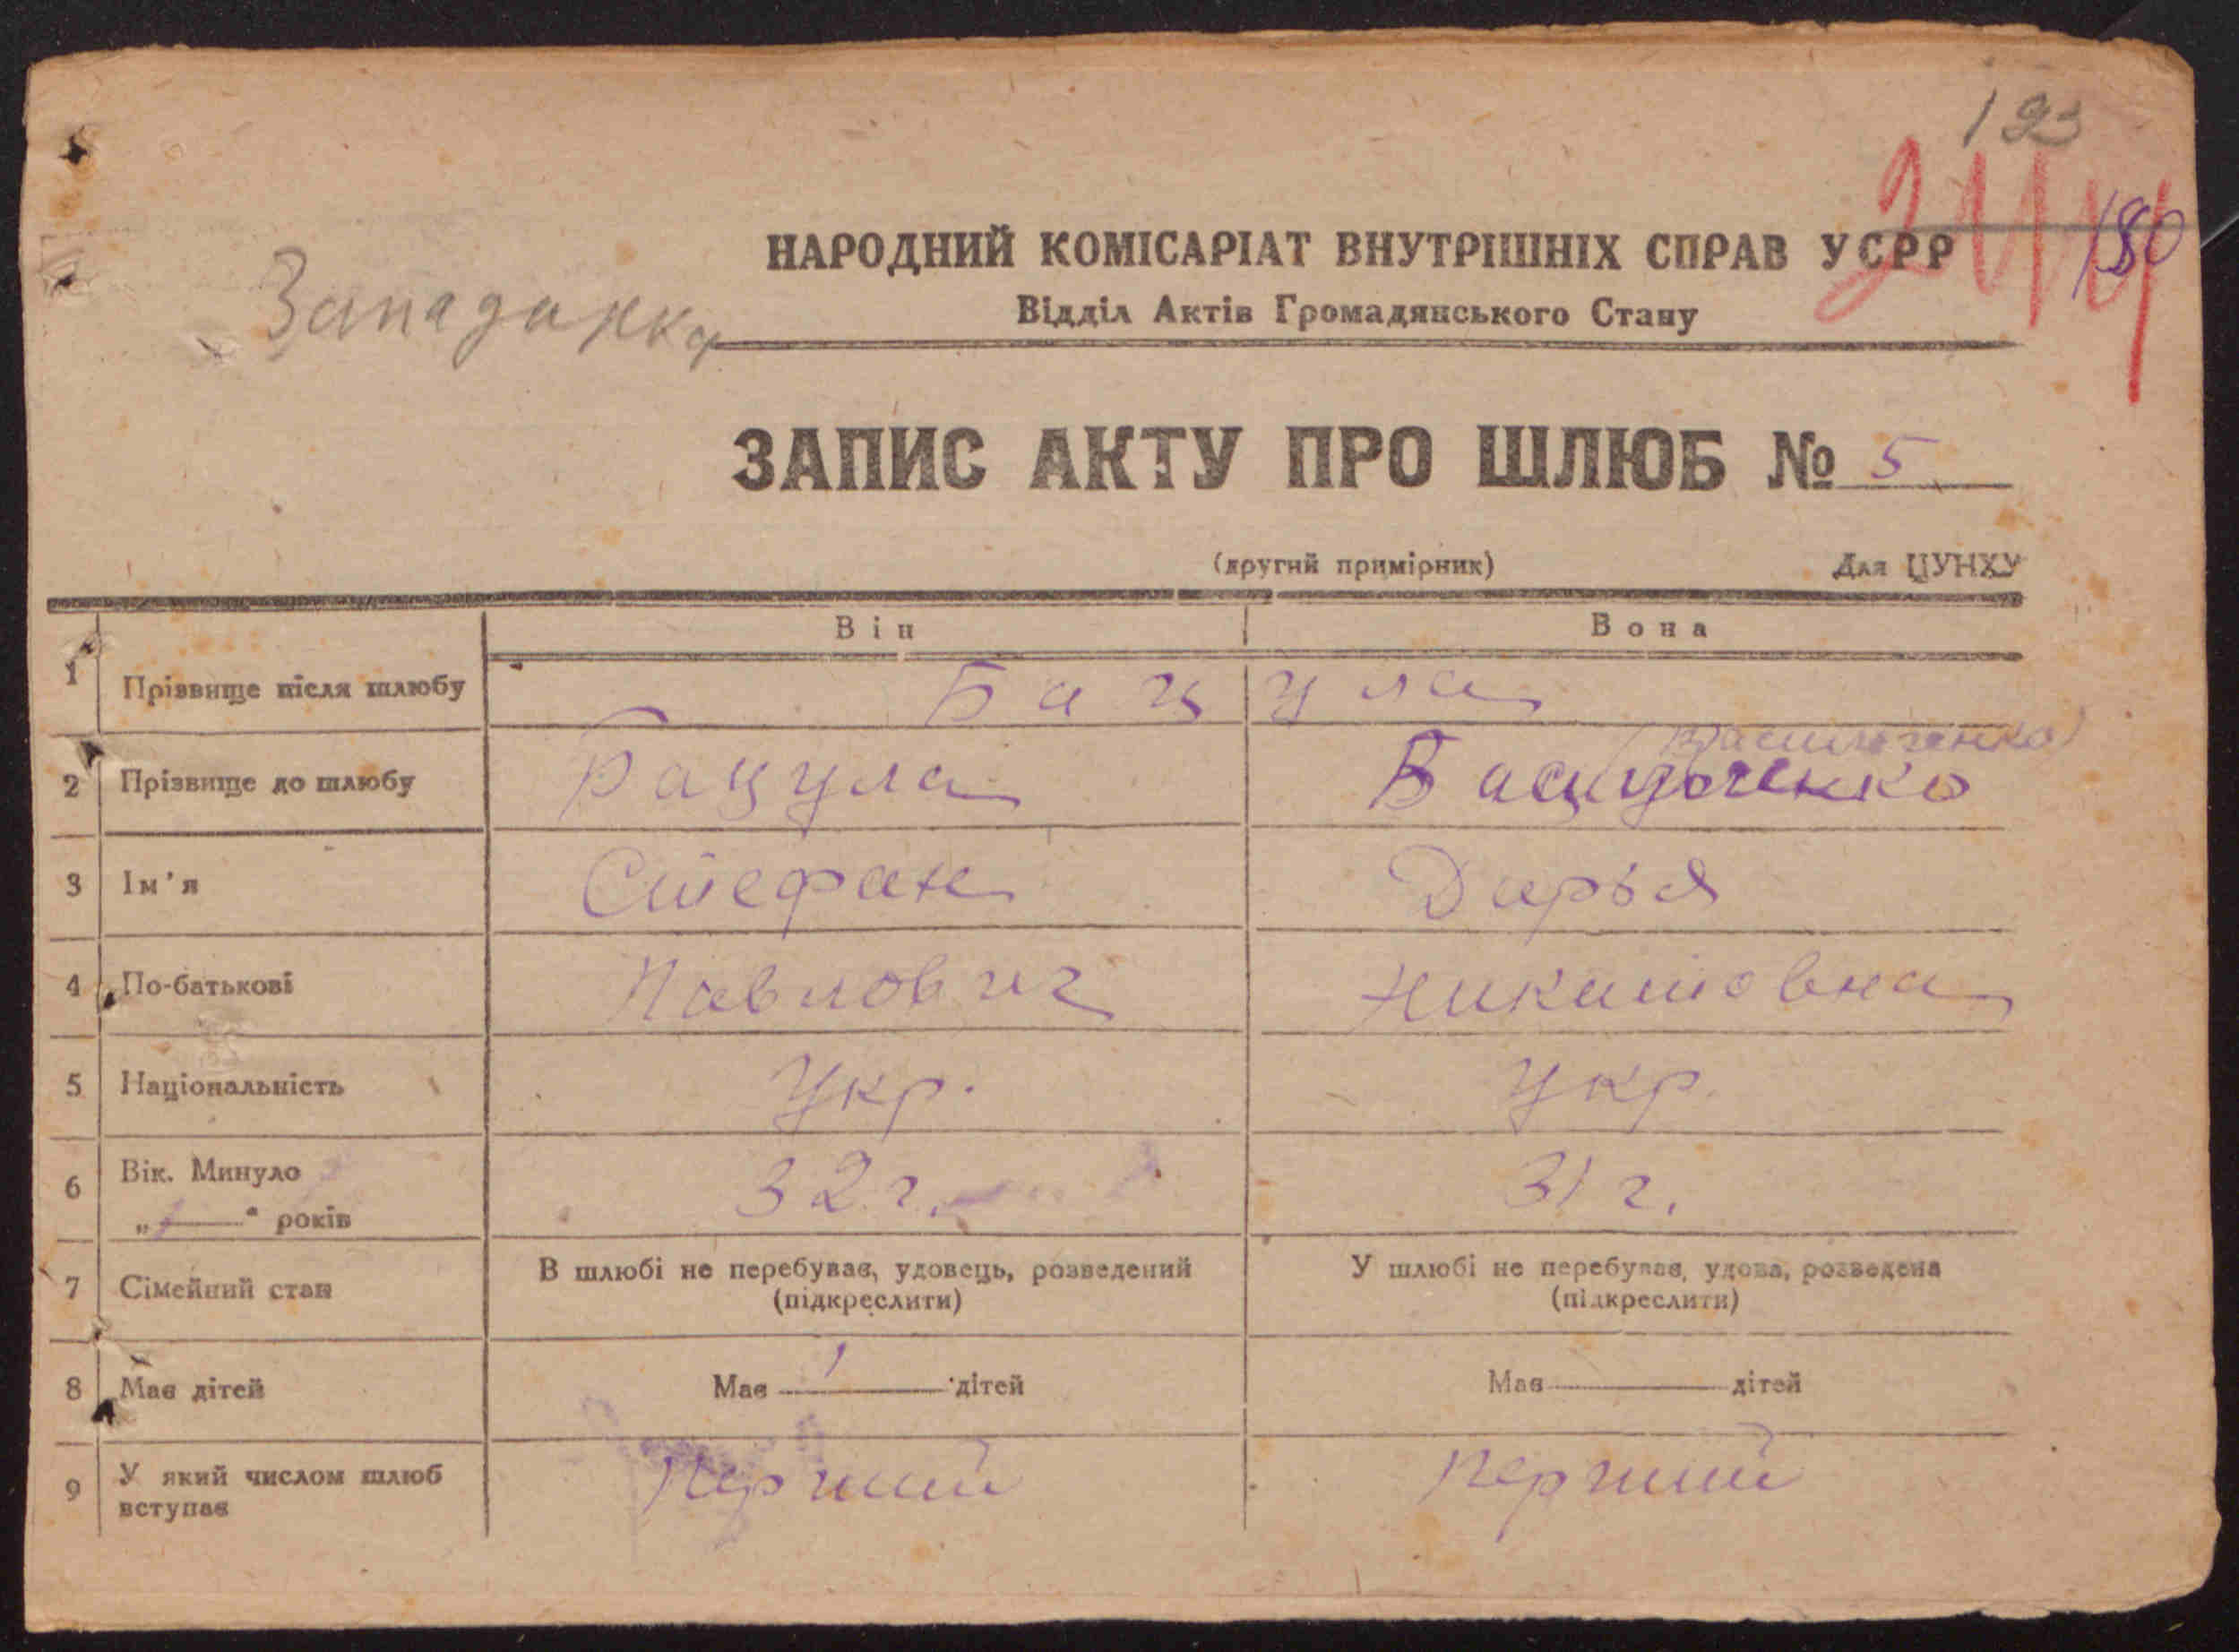 193
180
НАРОДНИЙ КОМІСАРІАТ ВНУТРІШНІХ СПРАВ УСРР
Западинка
Відділ Актів Громадянського Стану
ЗАПИС АКТУ ПРО ШЛЮБ № 5
(другий примірник) Для ЦУНХУ
Він Вона
1 Прізвище після шлюбу Бацула
2 Прізвище до шлюбу Бацула
3 Ім'я Стефан Дарья
4 По-батькові Павлович Никитовна
5 Національність Укр. Укр.
6 Вік. Минуло 32 г. 31 г.
„ — “ років
7 Сімейний стан В шлюбі не перебував, удовець, розведений У шлюбі не перебував, удова, розведена
(підкреслити) (підкреслити)
8 Має дітей Має 1 дітей Має дітей
9 У який числом шлюб вступає Перший Перший